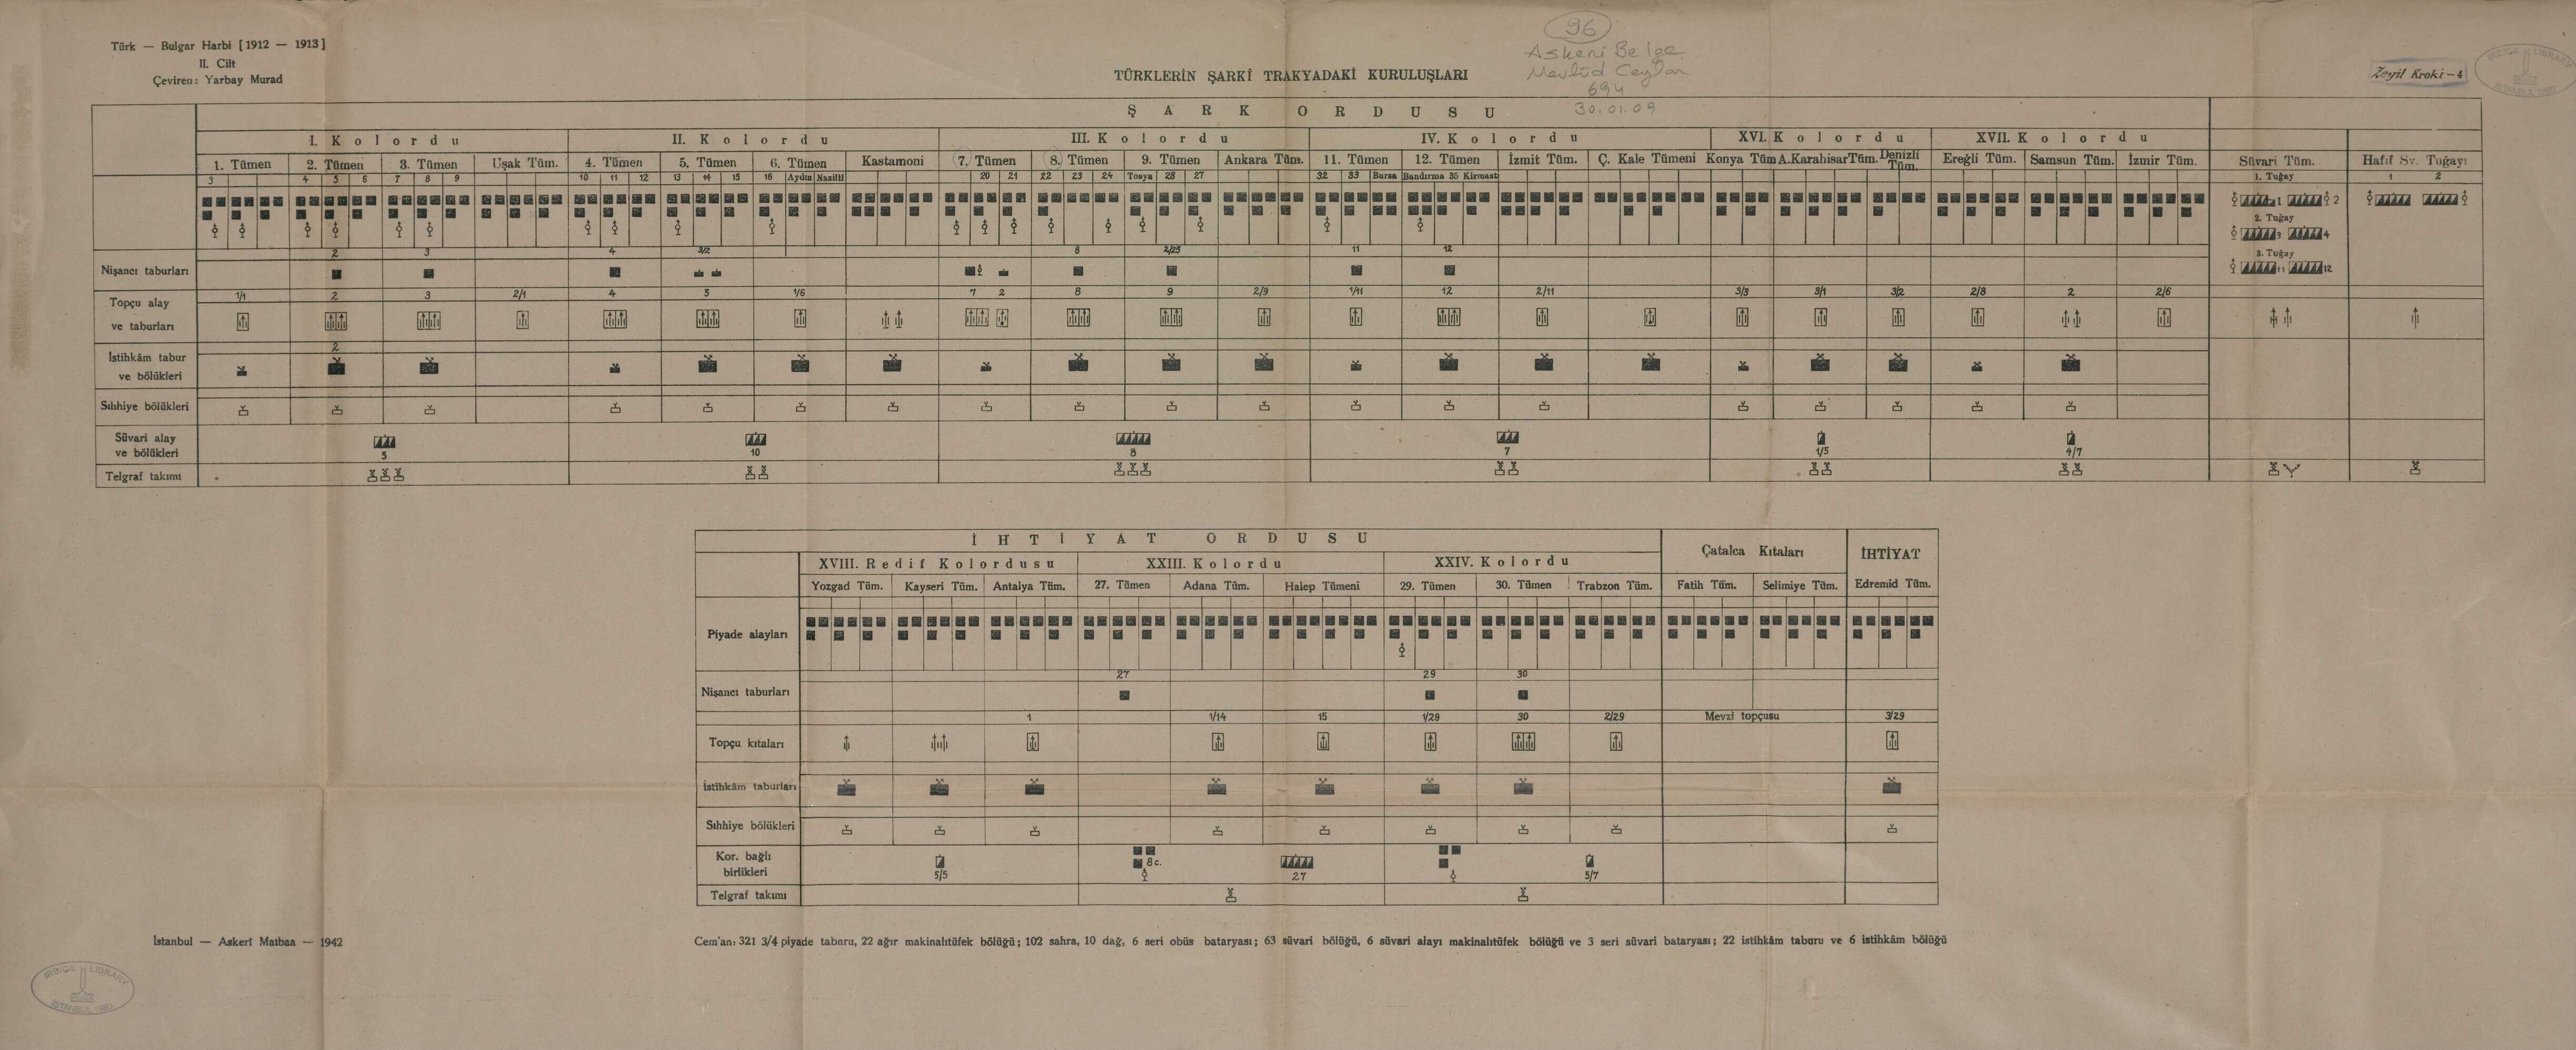 Türk — Bulgar Harbi [1912 — 1913]
II. Cilt
Çeviren: Yarbay Murad
96
Askeri Belge
Mevlüd Ceylan
694
30.01.09
TÜRKLERİN ŞARKÎ TRAKYADAKİ KURULUŞLARI
Zeyil Kroki-4
IRCICA LIBRARY
ISTANBUL, 1980
ŞARK ORDUSU
I. Kolordu II. Kolordu III. Kolordu IV. Kolordu XVI. Kolordu XVII. Kolordu
1. Tümen 2. Tümen 3. Tümen Uşak Tüm. 4. Tümen 5. Tümen 6. Tümen Kastamoni 7. Tümen 8. Tümen 9. Tümen Ankara Tüm. 11. Tümen 12. Tümen İzmit Tüm. Ç. Kale Tümeni Konya Tüm A.Karahisar Tüm. Denizli Tüm. Ereğli Tüm. Samsun Tüm. İzmir Tüm. Süvari Tüm. Hafif Sv. Tugayı
3 4 5 6 7 8 9 10 11 12 13 14 15 16 Aydın Nazilli 20 21 22 23 24 Tosya 28 27 32 33 Bursa Bandırma 35 Kirmast 1. Tugay 1 2
1 2
2. Tugay
3 4
3. Tugay
11 12
2 3 4 3/2 8 2/25 11 12
Nişancı taburları
1/1 2 3 2/1 4 5 1/6 7 2 8 9 2/9 1/11 12 2/11 3/3 3/1 3/2 2/8 2 2/6
Topçu alay
ve taburları
2
İstihkâm tabur
ve bölükleri
Sıhhiye bölükleri
Süvari alay
ve bölükleri
5 10 8 7 1/5 4/7
Telgraf takımı
İHTİYAT ORDUSU
Çatalca Kıtaları İHTİYAT
XVIII. Redif Kolordusu XXIII. Kolordu XXIV. Kolordu
Yozgad Tüm. Kayseri Tüm. Antalya Tüm. 27. Tümen Adana Tüm. Halep Tümeni 29. Tümen 30. Tümen Trabzon Tüm. Fatih Tüm. Selimiye Tüm. Edremid Tüm.
Piyade alayları
27 29 30
Nişancı taburları
1 1/14 15 1/29 30 2/29 Mevzi topçusu 3/29
Topçu kıtaları
İstihkâm taburları
Sıhhiye bölükleri
Kor. bağlı
birlikleri
8c.
5/5 27 5/7
Telgraf takımı
İstanbul — Askerî Matbaa — 1942
Cem'an: 321 3/4 piyade taburu, 22 ağır makinalıtüfek bölüğü; 102 sahra, 10 dağ, 6 seri obüs bataryası; 63 süvari bölüğü, 6 süvari alayı makinalıtüfek bölüğü ve 3 seri süvari bataryası; 22 istihkâm taburu ve 6 istihkâm bölüğü
IRCICA LIBRARY
ISTANBUL, 1980